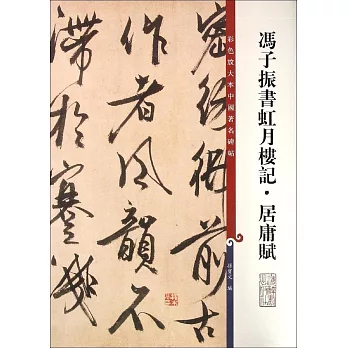 馮子振書虹月樓記·居庸賦
彩色放大本中國著名碑帖
孫寶文 編
前古
作者風韻不
滯於蹇